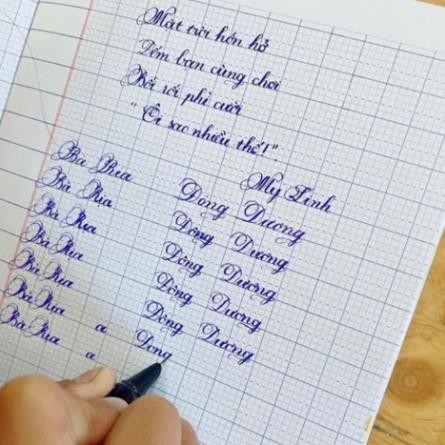 Mặt trời hớn hở
Đếm bạn cùng chơi
Bối rối phì cười
" Ôi sao nhiều thế!".
Mỹ Linh
Bà Rịa Đông Dương
Bà Rịa Đông Dương
Bà Rịa Đông Dương
Bà Rịa Đông Dương
Bà Rịa Đông Dương
Bà Rịa a Dong
Bà Rịa a